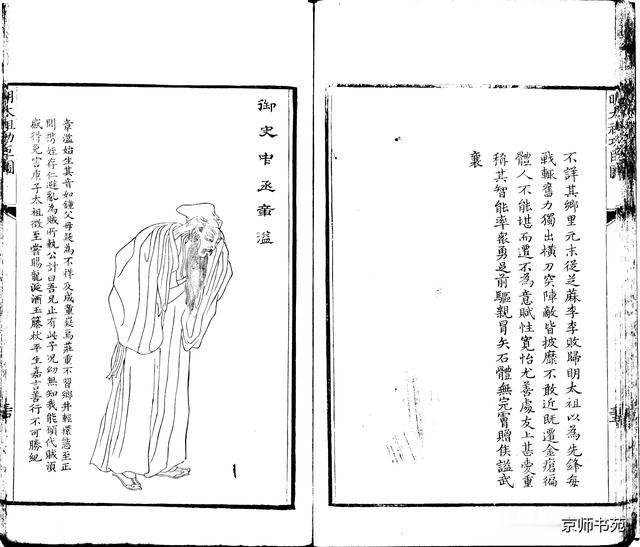 明太祖功臣圖
不詳其鄉里元末從芝蔴李李敗歸明太祖以為先鋒每
戰輒奮力獨出橫刀突陣敵皆披靡不敢近既遭金瘡徧
體人不能堪而不為意賦性寬怡尤善處友上甚愛重
稱其智能率眾勇是前驅親冒矢石體無完膚贈侯謚武
襄
御史中丞章溢
章溢始生其音如鐘父母疑為不祥及成童嶷焉莊重不習鄉井輕儇態至正
間携姪存仁避亂為賊所執公計曰吾兄止有此子況幼無知我能代賊
感得免官庚子太祖徵至嘗賜龍涎酒玉藤杖平生嘉言善行不可勝紀
明太祖功臣圖
京师书苑